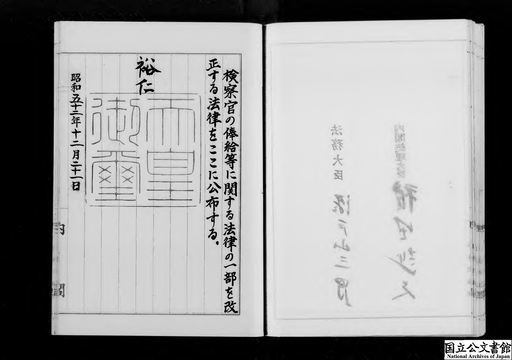 検察官の俸給等に関する法律の一部を改
正する法律をここに公布する。
裕仁
天皇
御璽
昭和五十二年十二月二十一日
内閣
内閣総理大臣
法務大臣 瀬戸山三男
国立公文書館
National Archives of Japan